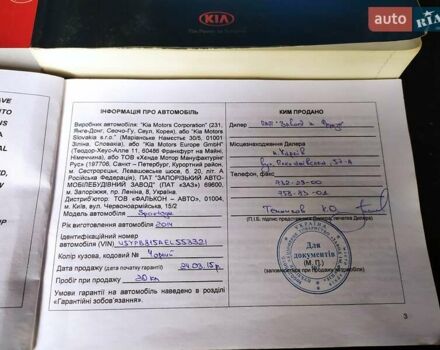 KIA
auto
RIA
ІНФОРМАЦІЯ ПРО АВТОМОБІЛЬ
Виробник автомобіля: "Kia Motors Corporation" (231,
Янге-Донг, Сеочо-Гу, Сеул, Корея), або "Kia Motors
Slovakia s.r.o." (Маріанське Намєстіє 30/5, 01001
Зіліна, Словакія), або "Kia Motors Europe GmbH"
(Теодор-Хеус-Аллеє 11, 60486 Франкфурт на Майні,
Німеччина), або ТОВ «Хенде Мотор Мануфактурінг
Рус» (197706, Санкт – Петербург, Курортний район,
м. Сестрорецьк, Левашовське шосе, б. 20, літ. А
Російська Федерація), ПАТ "ЗАПОРІЗЬКИЙ АВТО-
МОБІЛЕБУДІВНИЙ ЗАВОД" (ПАТ «ЗАЗ») 69600,
м. Запоріжжя, пр. Леніна, 8, Україна
Дистриб'ютор: ТОВ «ФАЛЬКОН – АВТО», 01004,
м. Київ, вул. Червоноармійська, 15/2
Модель автомобіля Sportage
Рік виготовлення автомобіля 2014
Ідентифікаційний номер
автомобіля (VIN) U5YPB815AEL553321
Колір кузова, кодовий № Чорний
Дата продажу (дата початку гарантії) 24.03.15р.
Пробіг при продажу 20 км
Умови гарантії на автомобіль наведено в розділі
«Гарантійні зобов'язання».
КИМ ПРОДАНО
Дилер
Місцезнаходження Дилера
м. Харків
57-А
Телефон, факс
732-29-00
758-83-01
(П.І.Б. підпис представника Дилера) печатка Дилера)
УКРАЇНА
Для
документів
(М. П.)
(заповнюється при продажу автомобіля)
3